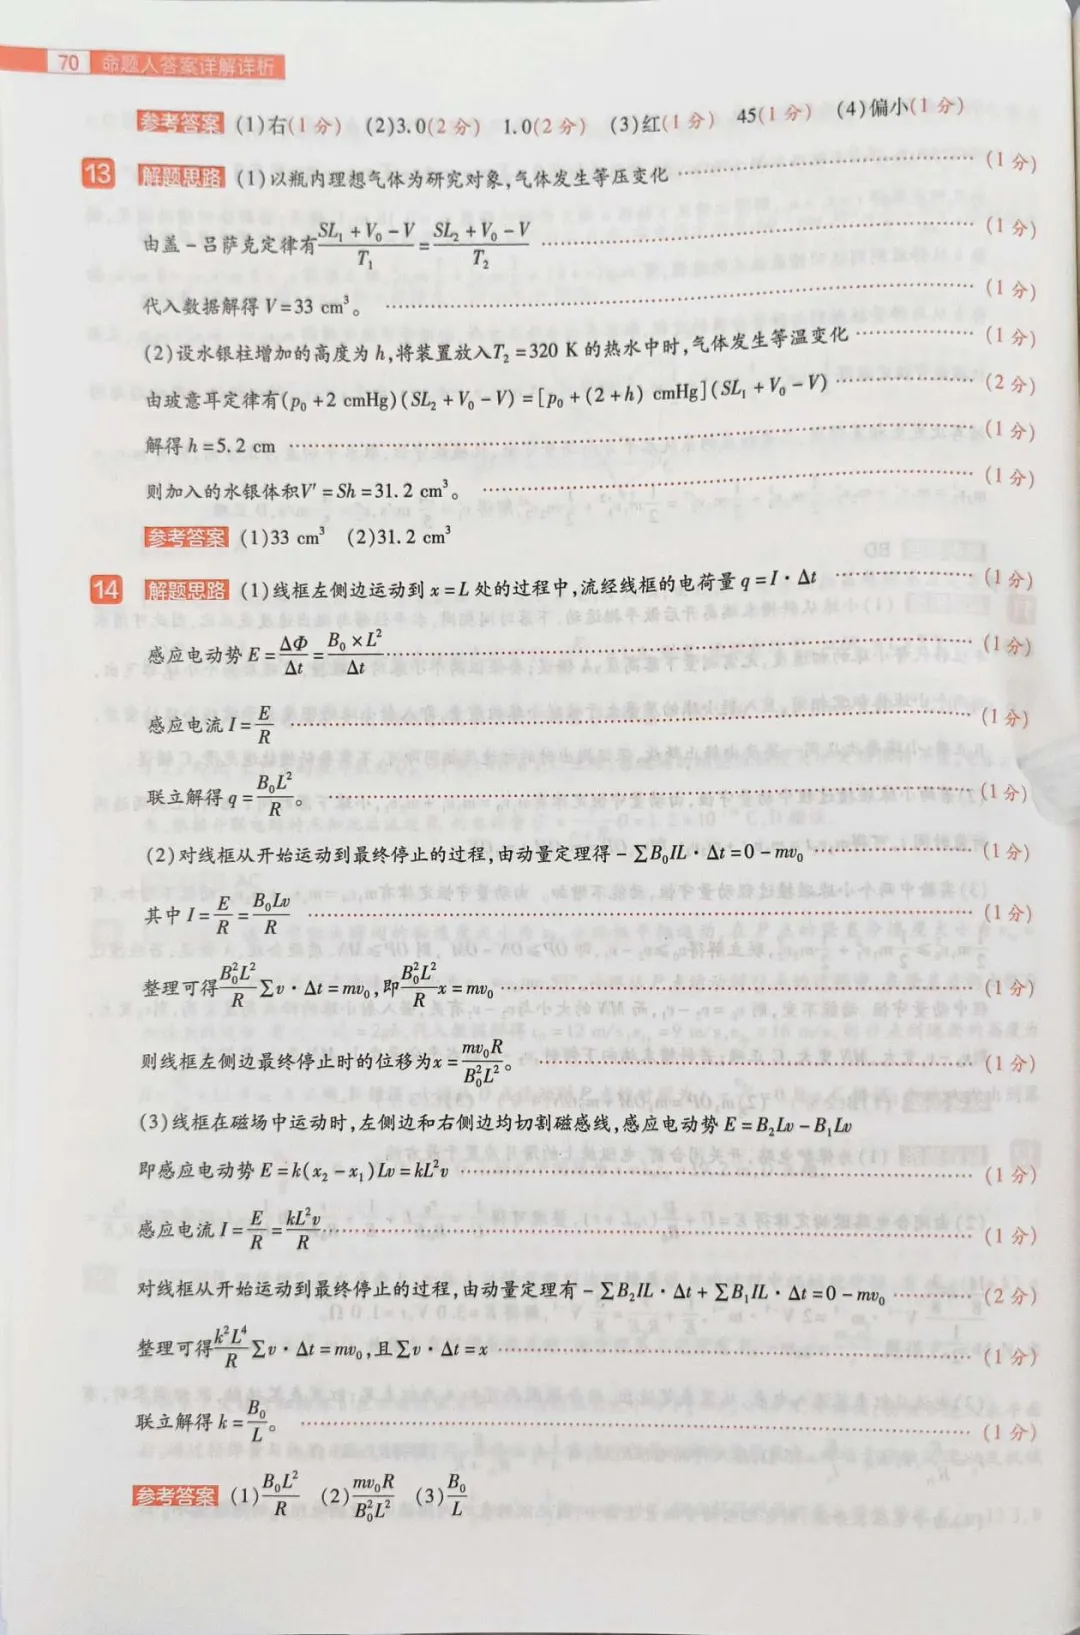 70 命题人答案详解详析
参考答案 (1)右(1分) (2)3.0(2分) 1.0(2分) (3)红(1分) 45(1分) (4)偏小(1分)
13 解题思路 (1)以瓶内理想气体为研究对象,气体发生等压变化 …… (1分)
由盖-吕萨克定律有(SL₁+V₀-V)/T₁=(SL₂+V₀-V)/T₂ …… (1分)
代入数据解得V=33 cm³。 …… (1分)
(2)设水银柱增加的高度为h,将装置放入T₂=320 K的热水中时,气体发生等温变化 …… (1分)
由玻意耳定律有(p₀+2 cmHg)(SL₂+V₀-V)=[p₀+(2+h) cmHg](SL₁+V₀-V) …… (2分)
解得h=5.2 cm …… (1分)
则加入的水银体积V′=Sh=31.2 cm³。 …… (1分)
参考答案 (1)33 cm³ (2)31.2 cm³
14 解题思路 (1)线框左侧边运动到x=L处的过程中,流经线框的电荷量q=I·Δt …… (1分)
感应电动势E=ΔΦ/Δt=B₀×L²/Δt …… (1分)
感应电流I=E/R …… (1分)
联立解得q=B₀L²/R。 …… (1分)
(2)对线框从开始运动到最终停止的过程,由动量定理得-∑B₀IL·Δt=0-mv₀ …… (1分)
其中I=E/R=B₀Lv/R …… (1分)
整理可得B₀²L²/R ∑v·Δt=mv₀,即B₀²L²/R x=mv₀ …… (1分)
则线框左侧边最终停止时的位移为x=mv₀R/B₀²L²。 …… (1分)
(3)线框在磁场中运动时,左侧边和右侧边均切割磁感线,感应电动势E=B₂Lv-B₁Lv
即感应电动势E=k(x₂-x₁)Lv=kL²v …… (1分)
感应电流I=E/R=kL²v/R …… (1分)
对线框从开始运动到最终停止的过程,由动量定理有-∑B₂IL·Δt+∑B₁IL·Δt=0-mv₀ …… (2分)
整理可得k²L⁴/R ∑v·Δt=mv₀,且∑v·Δt=x …… (1分)
联立解得k=B₀/L。 …… (1分)
参考答案 (1)B₀L²/R (2)mv₀R/B₀²L² (3)B₀/L